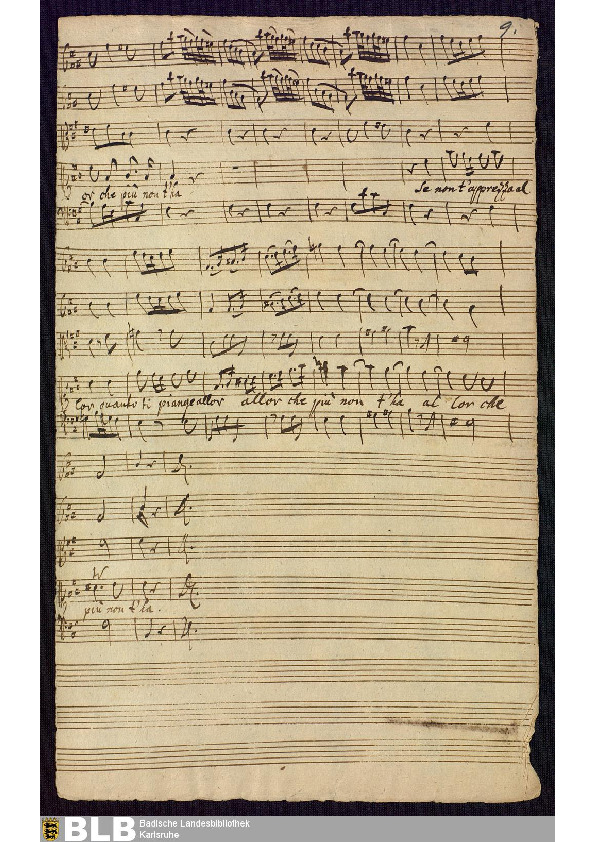 9.
or che più non t'ha
Se non t'apprezza al
lor quanto ti piange allor allor che più non t'ha al lor che
tr
più non t'ha.
BLB Badische Landesbibliothek
Karlsruhe